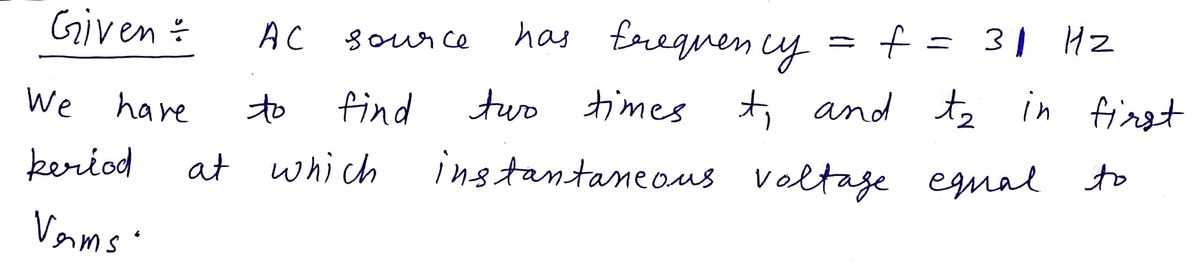 Given ÷ AC source has frequency = f = 31 Hz
We have to find two times t₁ and t₂ in first
period at which instantaneous voltage equal to
Vrms.